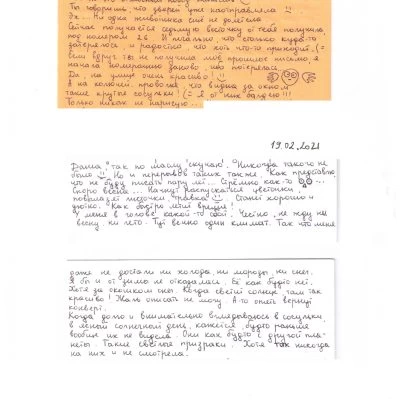 Ты говорила, что зверей уже насотравляла
Эх... Ни одна животинка ещё не долетела
Сейчас получается седьмую весточку от тебя получила,
под номером 26. И печально, что столько куда-то
затерялось, и радостно, что хоть что-то приходит. (=
Если вдруг ты не получила моё прошлое письмо, я
начала нумерацию заново, ибо потерялась
Да, на улице очень красиво!
А на колючей проволоке, что видна за окном
такие крутые сосульки (= я от них балдею!!!
Только никак не нарисую...
19.02.2021
Даша, так по маслу скучаю. Никогда такого не
было. Но и перерывов таких так же. Как представлю
что не буду писать пару лет. Стрёмно как-то
Скоро весна... Начнут распускаться цветочки,
повылазят жучочки, травка. Станет хорошо и
уютно. Как быстро летит время!
У меня в голове какой-то сбой. Честно, не жду ни
весну ни лето. Тут вечно один климат. Так что меня
даже не достали ни холода, ни морозы, ни снег.
Я бы и от зимы не отказалась. Её как будто нет.
Хотя за окошком снег. Когда светит солнце, там так
красиво! Жаль описать не могу. А то опять вернут
конверт.
Когда долго и внимательно вглядываюсь в сосульки,
в ясный солнечный день, кажется, будто раньше
вообще их не видела. Они как будто с другой пла-
неты. Такие светлые призраки. Хотя так никогда
на них и не смотрела.